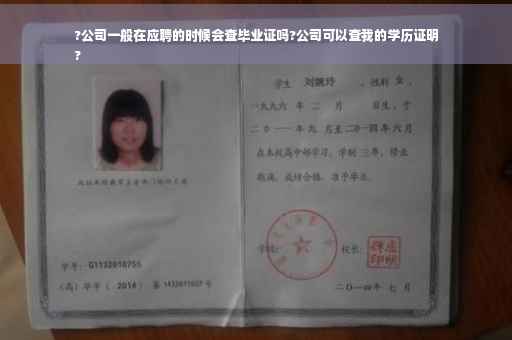 ?公司一般在应聘的时候会查毕业证吗?公司可以查我的学历证明
?
学生 刘婉玲 ，性别 女 ，
一九九六 年 二 月 日生，于
二〇一一年九 月至二〇一四年 六 月
在本校高中部学习，学制 三年，修业
期满，成绩合格，准予毕业。
学校： 校长：
学号： G1132010755
（高）毕字（ 2014 ）第 1432011007 号
二〇一四年 七 月